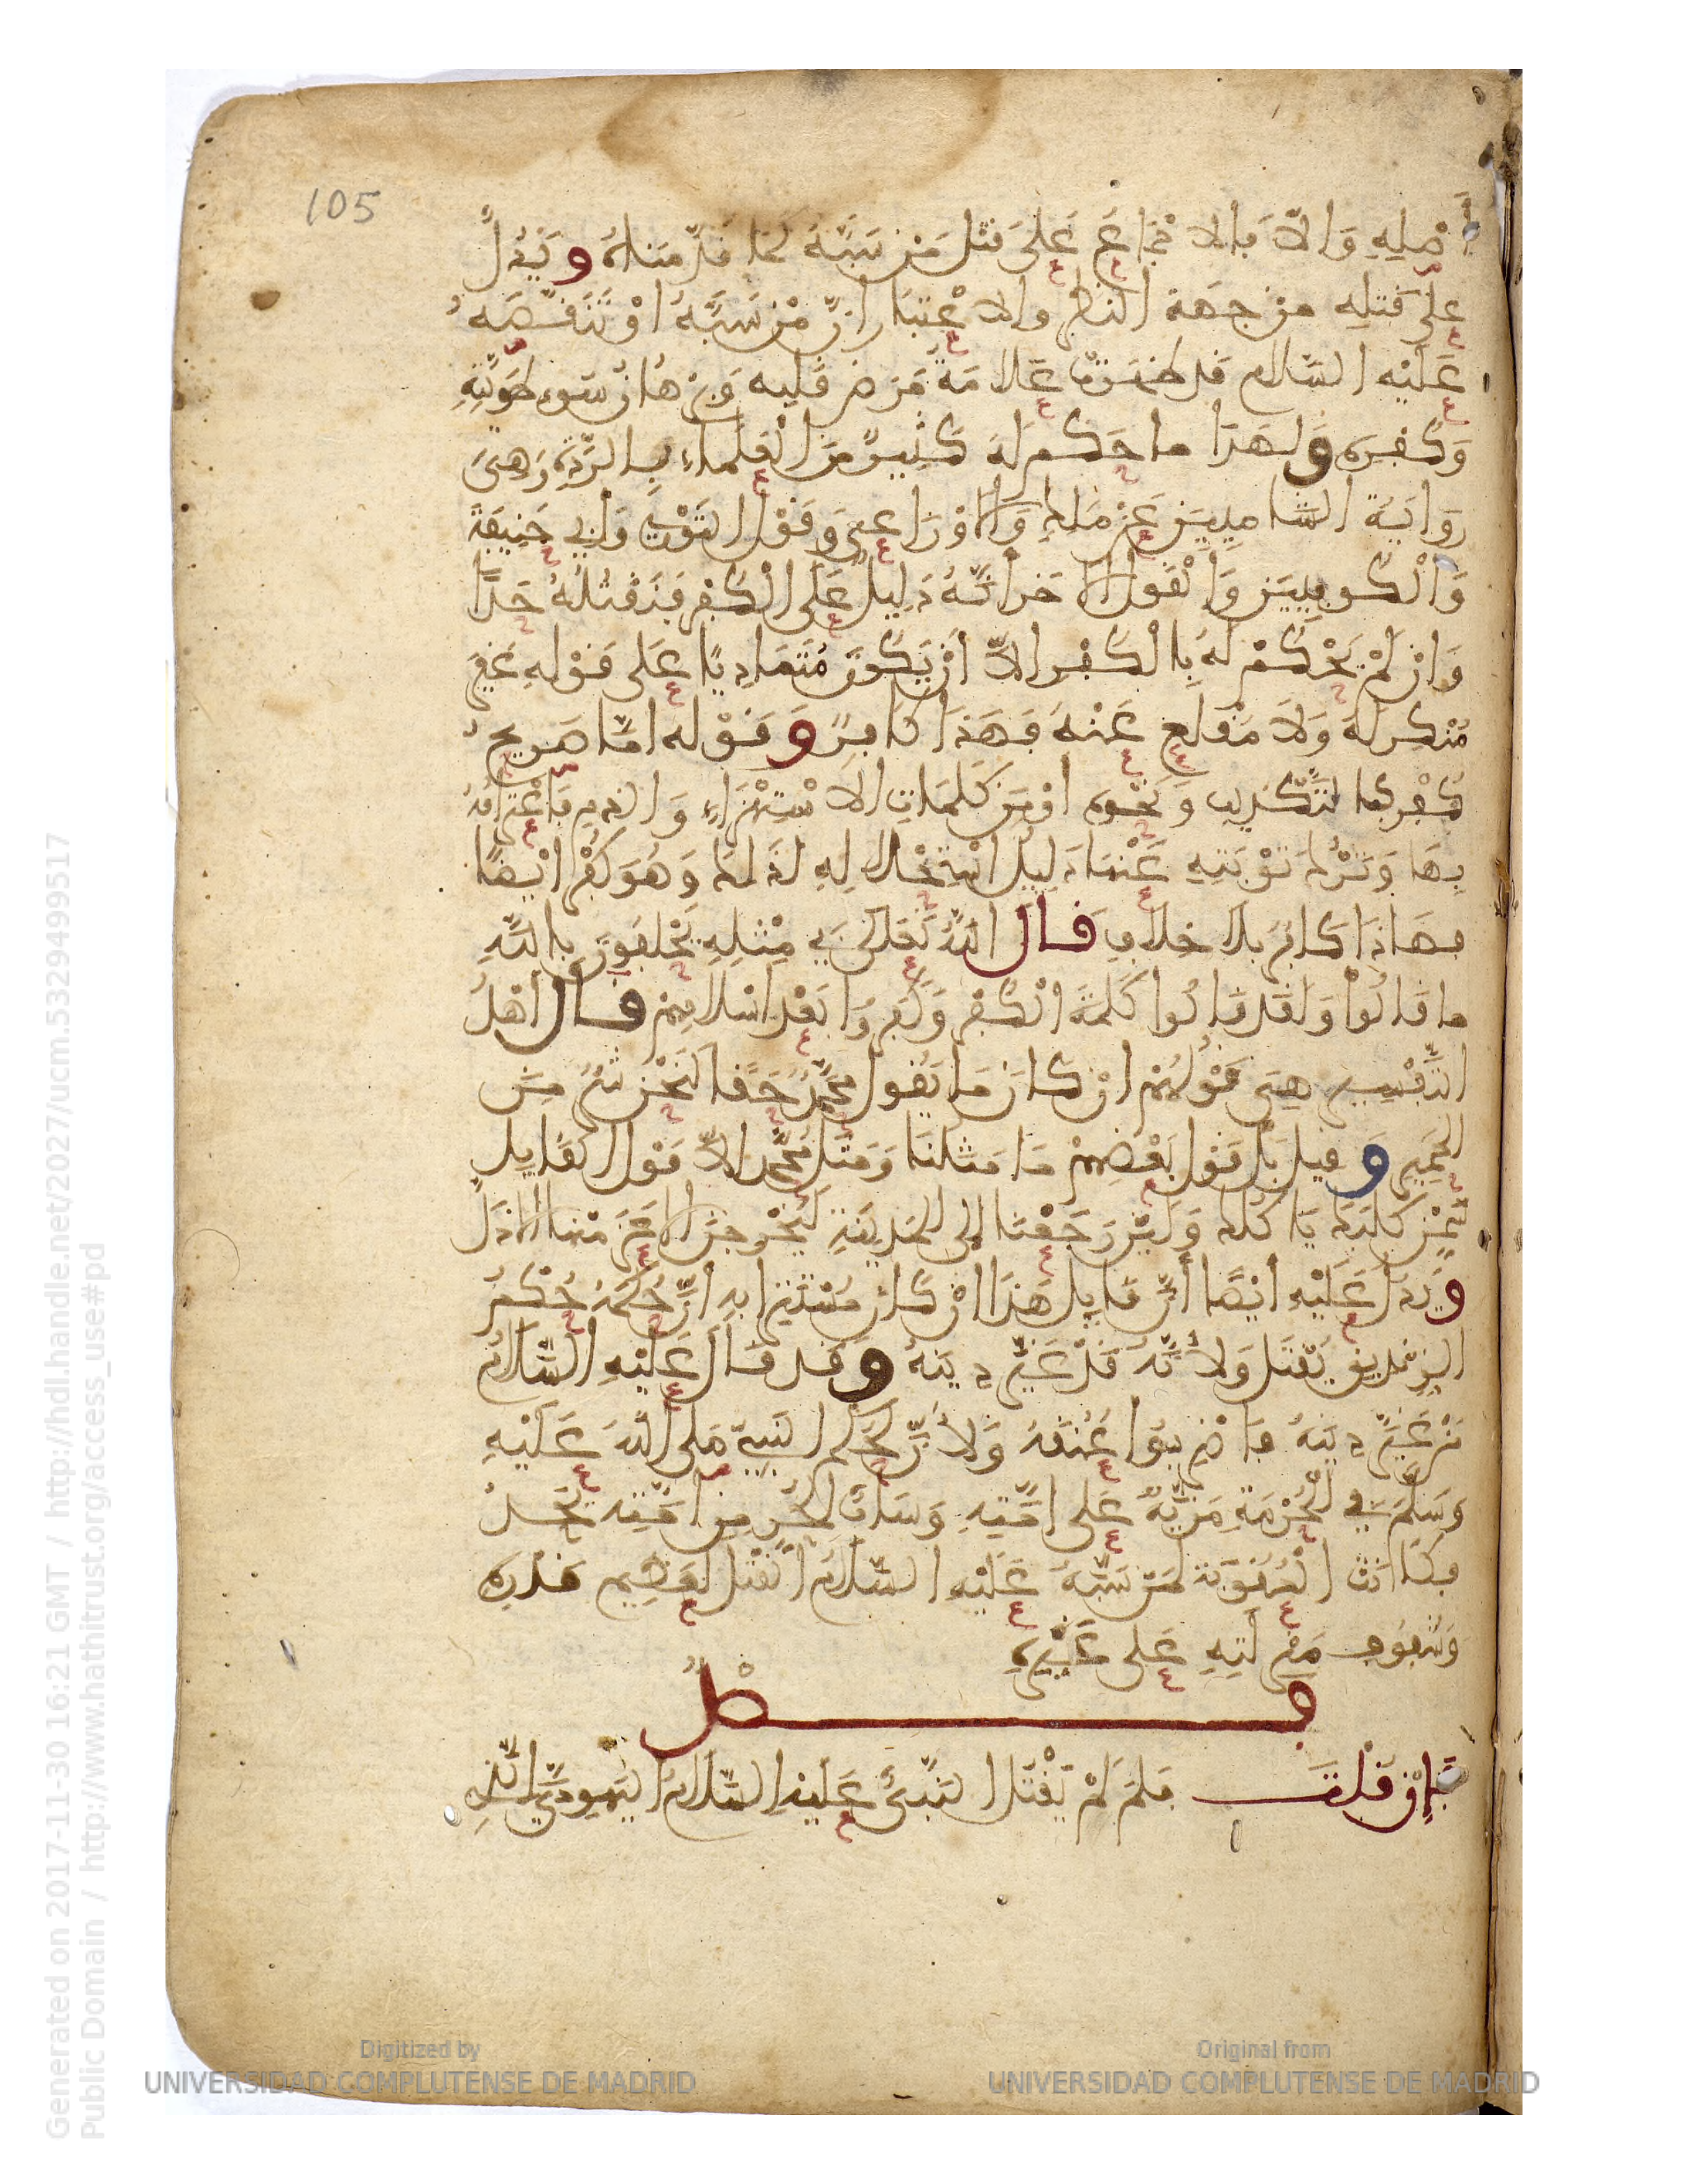 105
أصْلِهِ وَإلاّ فبالاجْمَاعِ عَلَى قتْلِ مَنْ سَبَّهُ كَمَا قَدَّمْنَاهُ وَيَدُلُّ
عَلَى قَتلِه من جهَة النظر والاعْتبَار انّ مَنْ سَبَّهُ اوْ تَنَقَّصَهُ
عَلَيْه السّلام قد ظهَرَتْ عَلامَةُ مَرَض قَلبه وَبُرْهَان سُوء طَوِيَّتِهِ
وَكفره وَلهَذا ما حَكم لَهُ كَثِيرٌ مِنَ الْعُلماء بالرّدّة وَهِيَ
رِوَايَةُ الشّامِيِّينَ عَنْ مَالك وَالاوْزَاعي وَقَوْل الثّوْري وَأبي حَنِيفَةَ
وَالْكُوفِيِّينَ وَالْقَوْل الاخَر أنّهُ دَلِيلٌ عَلَى الْكُفْر فيَقْتُلُهُ حَدًّا
وَإنْ لَمْ يَحْكُمْ لَهُ بالْكُفْر الاّ أنْ يَكُونَ مُتَمَادِيًا عَلَى قَوْلِهِ غَيْرَ
مُنْكِر لَهُ وَلاَ مُقْلِع عَنْهُ فَهَذَا كَافِرٌ وَقَوْله امّا صَرِيحُ
كُفْر كالتَّكْذِيب وَنَحْوه اوْ مِنْ كَلمَاتِ الاسْتِهْزَاءِ وَالذّم فَاعْترَافُهُ
بِهَا وَتَرْكُ تَوْبَتِهِ عَنْهَا دَلِيلُ اسْتِحْلالِهِ لذَلكَ وَهُوَ كُفْرٌ ايْضًا
فهَاذَا كافِرٌ بلاَ خِلافٍ قَال اللهُ تَعَالَى فِي مِثْلِهِ يَحْلِفُونَ بالله
ما قَالُوا وَلَقَد قَالُوا كَلِمَةَ الْكُفْر وَكَفَرُوا بَعْدَ اسْلامِهِمْ قَال أهْلُ
التّفْسِيرِ هِيَ قَوْلُهُمْ انْ كَانَ مَا يَقُول مُحَمّدٌ حَقًّا لَنَحْنُ شَرٌّ مِنَ
الحَمِيرِ وَقيل بَلْ قَوْل بَعْضِهِمْ مَا مَثَلنَا وَمَثَلُ مُحَمّد الاّ قَوْل القَايل
سَمِّنْ كَلْبَكَ يَاكُلكَ وَلَئِنْ رَجَعْنَا الَى المَدِينَةِ لَيُخْرِجَنَّ الاعَزُّ مِنْهَا الاذَلَّ
وَيدُلّ عَلَيْهِ ايْضًا أنّ قَايِلَ هَذَا انْ كَانَ مُسْتَتِرًا بهِ انّ حُكْمَهُ حُكْمُ
الزِنْدِيق يُقْتَل وَلأَنّهُ قَدْ غَيّرَ دِينَهُ وَقد قَال عَلَيْهِ السَّلامُ
مَنْ غَيَّرَ دِينَهُ فَاضْرِبُوا عُنُقَهُ وَلأنّ لِحُكم النَّبِيّ صَلى اللهُ عَلَيْهِ
وَسَلّمَ فِي الْحُرْمَةِ مَزِيّةً عَلى امّتِهِ وَسَابّ الحُرِّ مِن امّتِه يُحَدُّ
فكَانَت الْعُقُوبَة لمَنْ سَبَّهُ عَلَيْهِ السّلامُ القَتْلَ لعَظِيم قَدْرِهِ
وَشُفُوفِ مَنْزلَتِهِ عَلى غَيْرِهِ
فصْلٌ
فَإنْ قُلْتَ فَلِمَ لَمْ يَقْتُل النّبِيُّ عَلَيْهِ السّلامُ اليَهُودِيَّ الّذِي
Generated on 2017-11-30 16:21 GMT / http://hdl.handle.net/2027/ucm.5329499517
Public Domain / http://www.hathitrust.org/access_use#pd
Digitized by
UNIVERSIDAD COMPLUTENSE DE MADRID
Original from
UNIVERSIDAD COMPLUTENSE DE MADRID